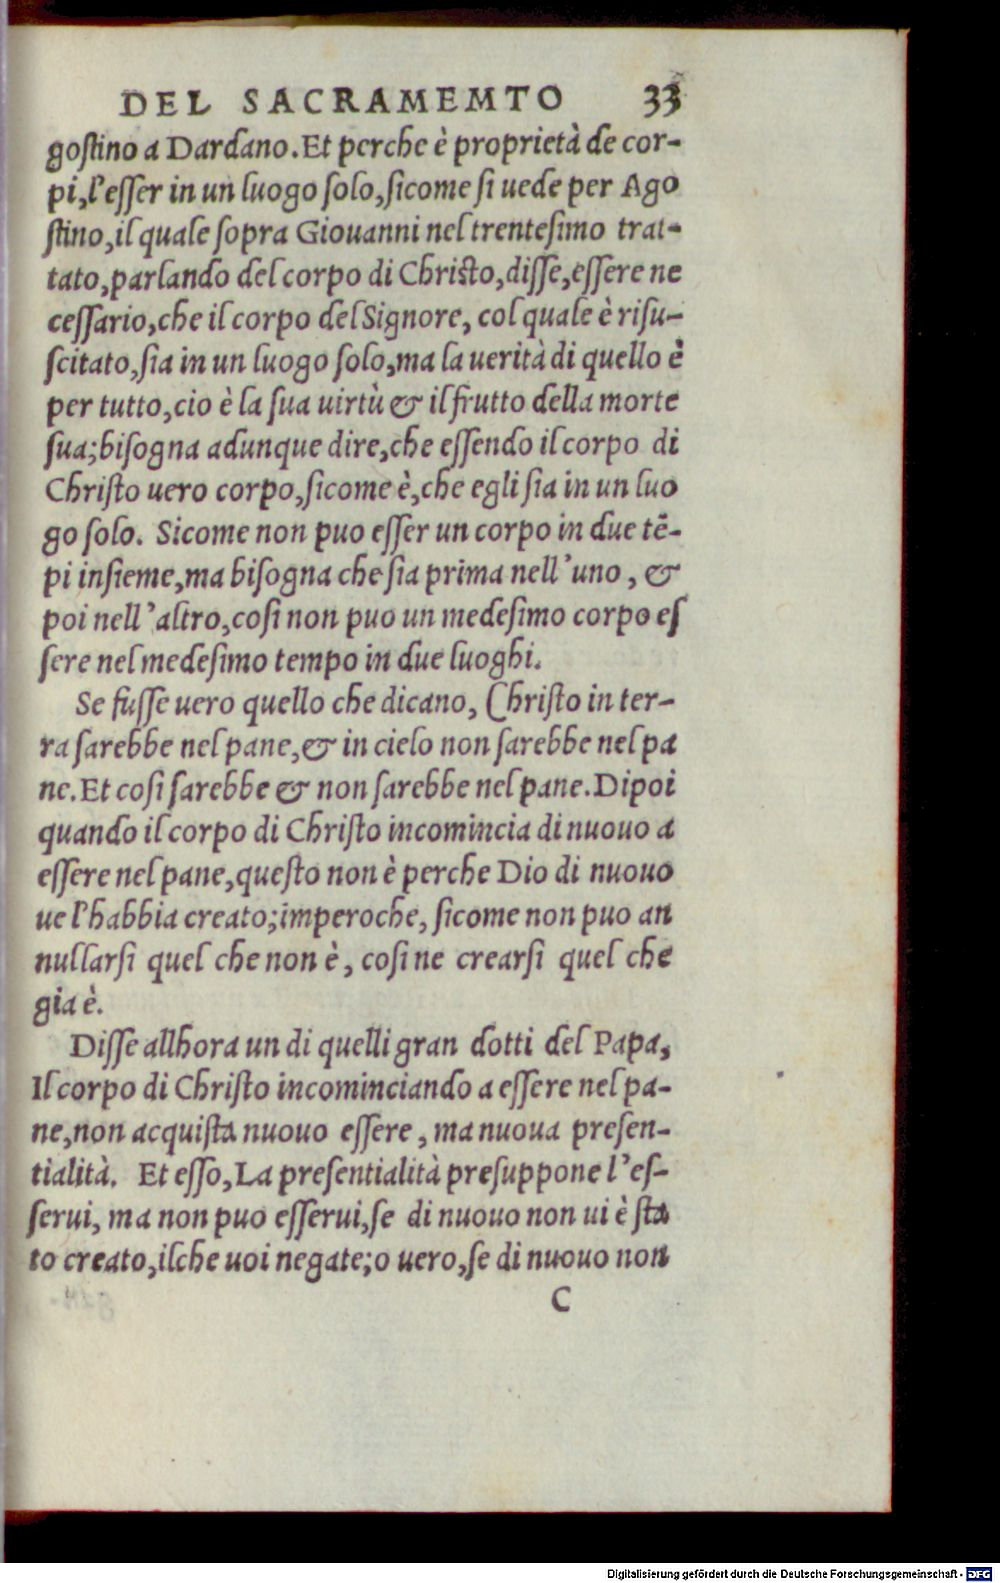 DEL SACRAMEMTO 33
goſtino a Dardano. Et perche è proprietà de cor-
pi, l'eſſer in un luogo ſolo, ſicome ſi uede per Ago
ſtino, il quale ſopra Giouanni nel trenteſimo trat-
tato, parlando del corpo di Chriſto, diſſe, eſſere ne
ceſſario, che il corpo del Signore, col quale è riſu-
ſcitato, ſia in un luogo ſolo, ma la uerità di quello è
per tutto, cio è la ſua uirtù & il frutto della morte
ſua; biſogna adunque dire, che eſſendo il corpo di
Chriſto uero corpo, ſicome è, che egli ſia in un luo
go ſolo. Sicome non puo eſſer un corpo in due tē-
pi inſieme, ma biſogna che ſia prima nell'uno, &
poi nell'altro, coſi non puo un medeſimo corpo eſ
ſere nel medeſimo tempo in due luoghi.
Se fuſſe uero quello che dicano, Chriſto in ter-
ra ſarebbe nel pane, & in cielo non ſarebbe nel pa
ne. Et coſi ſarebbe & non ſarebbe nel pane. Dipoi
quando il corpo di Chriſto incomincia di nuouo a
eſſere nel pane, queſto non è perche Dio di nuouo
ue l'habbia creato; imperoche, ſicome non puo an
nullarſi quel che non è, coſi ne crearſi quel che
gia è.
Diſſe allhora un di quelli gran dotti del Papa,
Il corpo di Chriſto incominciando a eſſere nel pa-
ne, non acquiſta nuouo eſſere, ma nuoua preſen-
tialità. Et eſſo, La preſentialità preſuppone l'eſ-
ſerui, ma non puo eſſerui, ſe di nuouo non ui è ſta
to creato, ilche uoi negate; o uero, ſe di nuouo non
C
Digitalisierung gefördert durch die Deutsche Forschungsgemeinschaft - DFG